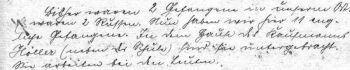 Bisher waren 2 Gefangene in unserem Ort.
Es waren 2 Russen. Nun haben wir hier 11 eng-
lische Gefangene. In dem Hause des Kaufmanns
Höller (neben der Schule) sind sie untergebracht.
Sie arbeiten bei den Leuten.